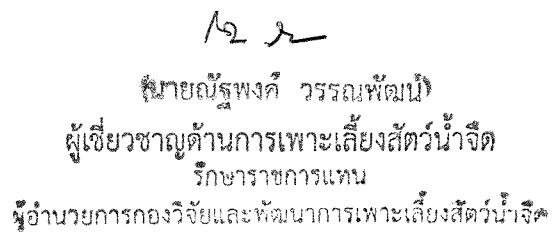 (นายณัฐพงค์ วรรณพัฒน์)
ผู้เชี่ยวชาญด้านการเพาะเลี้ยงสัตว์น้ำจืด
รักษาราชการแทน
ผู้อำนวยการกองวิจัยและพัฒนาการเพาะเลี้ยงสัตว์น้ำจืด